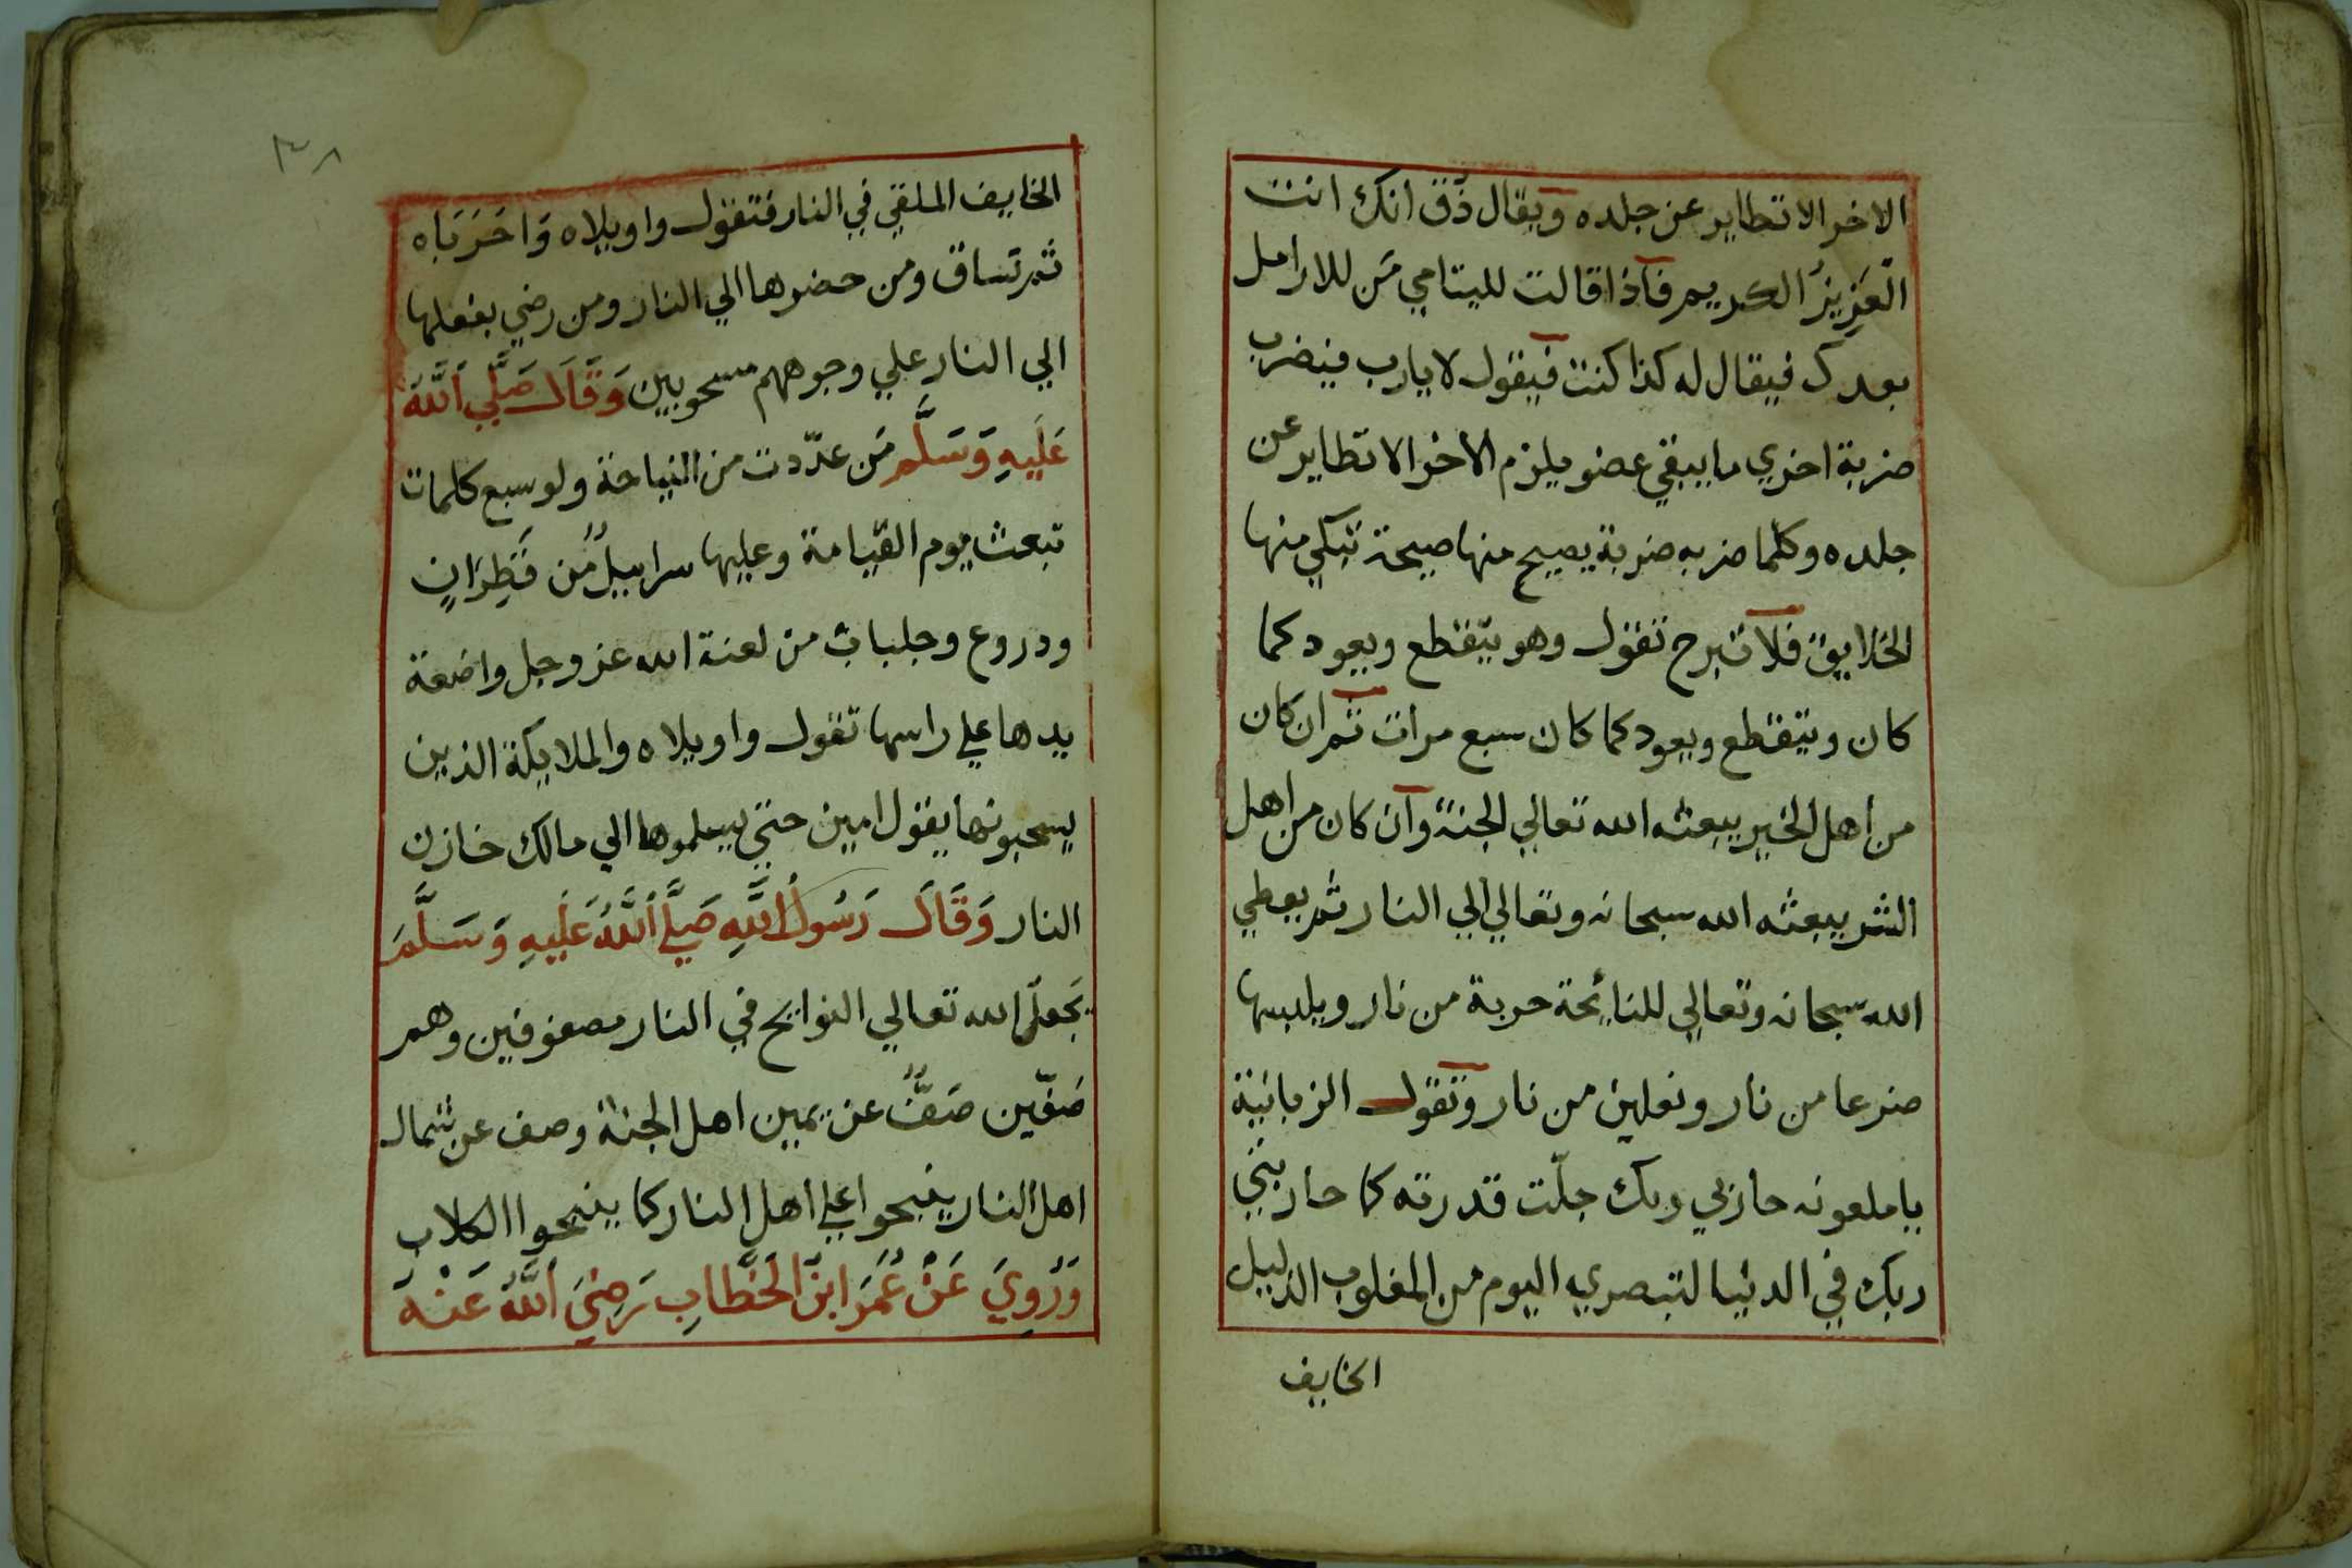 الاخر الا تطاير عن جلده ويقال ذق انك انت
العَزِيزُ الكريم فاذا قالت لليتامي مَن للارامل
بعدك فيقال له كذا كنت فيقول لا يارب فيضرب
ضربة اخري ما يبقي عضو يلزم الاخر الا تطاير عن
جلده وكلما ضربه ضربة يصيح منها صيحة تبكي منها
الخلايق فلا تبرح تقول وهو يتقطع ويعود كما
كان ويتقطع ويعود كما كان سبع مرات ثم ان كان
من اهل الخير يبعثه الله تعالي الجنة وان كان من اهل
الشر يبعثه الله سبحانه وتعالي الي النار ثم يعطي
الله سبحانه وتعالي للنائحة حربة من نار ويلبسها
ضرعا من نار ونعلين من نار وتقول الزبانية
ياملعونه حاربي ربك جلّت قدرته كما حاربتي
ربك في الدنيا لتبصري اليوم من المغلوب الذليل
الخايف
٣٨
الخايف الملقي في النار فتقول واويلاه وَاحَرَبَاه
ثم تساق ومن حضرها الي النار ومن رضي بفعلها
الي النار علي وجوههم مسحوبين وَقَالَ صَلَّي اَللَّهُ
عَلَيهِ وَسَلَّم مَن عدّدت من النياحة ولو سبع كلمات
تبعث يوم القيامة وعليها سرابيلٌ مُن قَطِرَانٍ
ودروع وجلباب من لعنة الله عز وجل واضعة
يدها علي راسها تقول واويلاه والملايكة الذين
يسحبونها يقول امين حتي يسلموها الي مالك خازن
النار وَقَالَ رَسُولُ اللَّهِ صَلَّي اَللَّهُ عَلَيهِ وَسَلَّمَ
يَجعل الله تعالي النوايح في النار مصفوفين وهم
صَفّين صَفٌّ عن يمين اهل الجنة وصف عن شمال
اهل النار ينبحوا علي اهل النار كما ينبحوا الكلاب
وَرُوِيَ عَنْ عُمَرَ ابنَ الخَطَّابِ رَضِيَ اَللَّهُ عَنْهُ